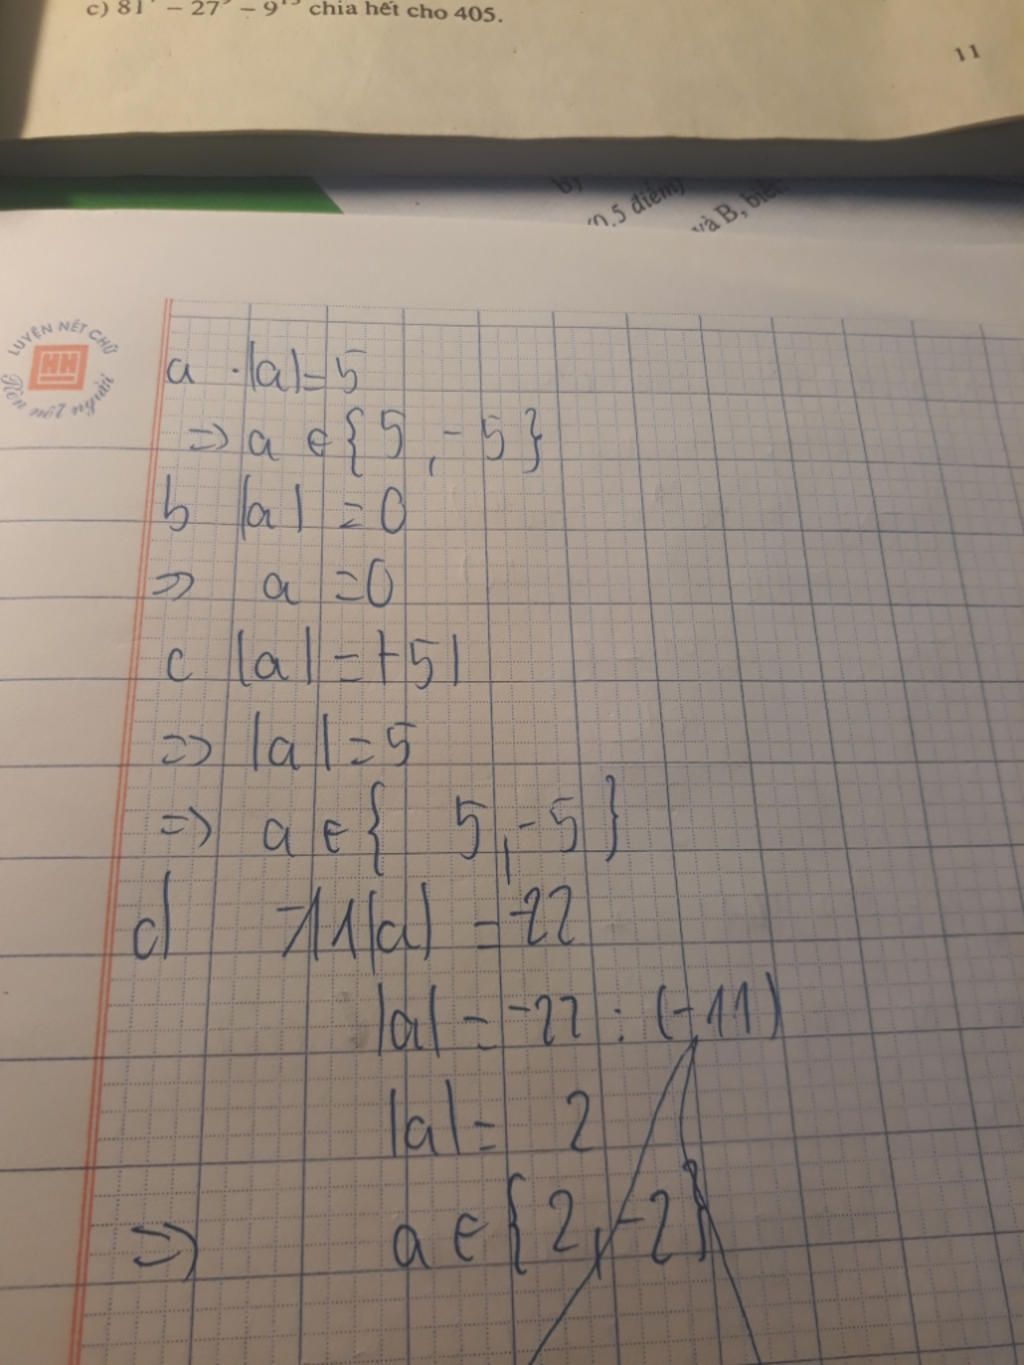 c) 81 - 27 - 9 chia hết cho 405.
11
b)
0,5 điểm)
và B, biết:
LUYỆN NÉT CHỮ
HN
Rèn nết người
a . |a| = 5
=> a ∈ { 5 , - 5 }
b |a| = 0
=> a = 0
c |a| = |-5|
=> |a| = 5
=> a ∈ { 5, -5 }
d -11|a| = -22
|a| = -22 : (-11)
|a| = 2
=> a ∈ { 2, -2 }